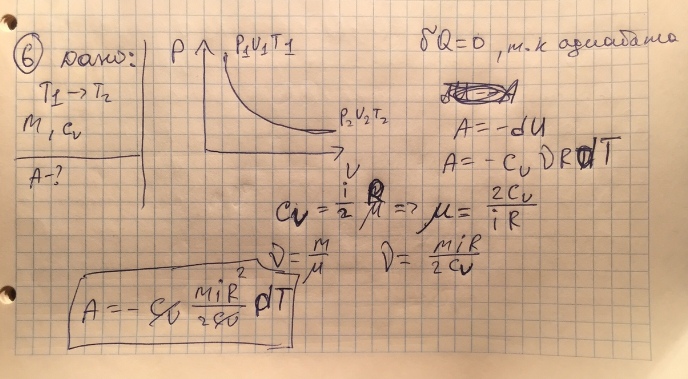 ⑥ Дано:
T₁ → T₂
M, Cᵥ
A - ?
P
P₁V₁T₁
P₂V₂T₂
V
δQ = 0, т.к адиабата
A = - dU
A = - Cᵥ ν R dT
Cᵥ = i/2 R/μ => μ = 2Cᵥ/iR
ν = m/μ ν = MiR/2Cᵥ
A = - Cᵥ MiR²/2Cᵥ dT